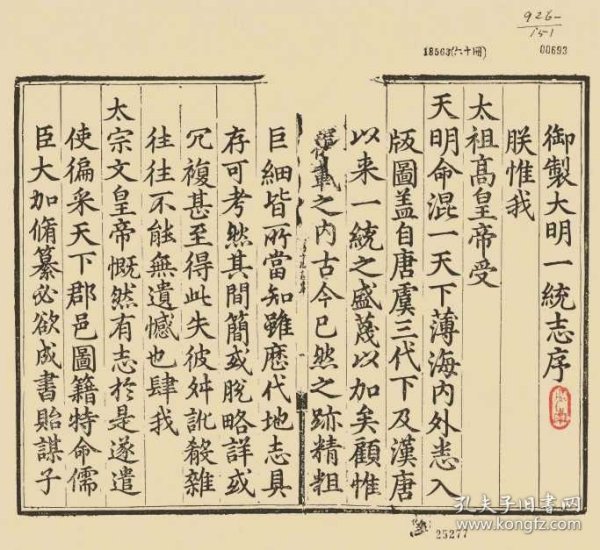 926-
151
18563(六十冊)
00693
御製大明一統志序
朕惟我
太祖高皇帝受
天明命混一天下薄海內外悉入
版圖盖自唐虞三代下及漢唐
以来一統之盛蔑以加矣顧惟
覆載之内古今已然之跡精粗
巨細皆所當知雖歷代地志具
存可考然其間簡或脫略詳或
冗複甚至得此失彼舛訛殽雜
往往不能無遺憾也肆我
太宗文皇帝慨然有志於是遂遣
使徧采天下郡邑圖籍特命儒
臣大加脩纂必欲成書貽謀子
25277
孔夫子旧书网
www.kongfz.com